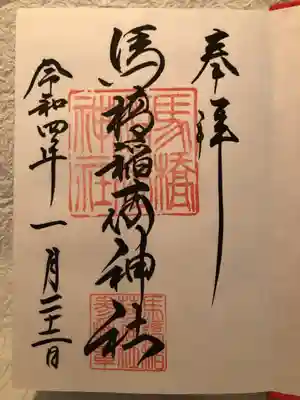 奉拝
馬橋稲荷神社
馬橋
神社
令和四年一月二十二日